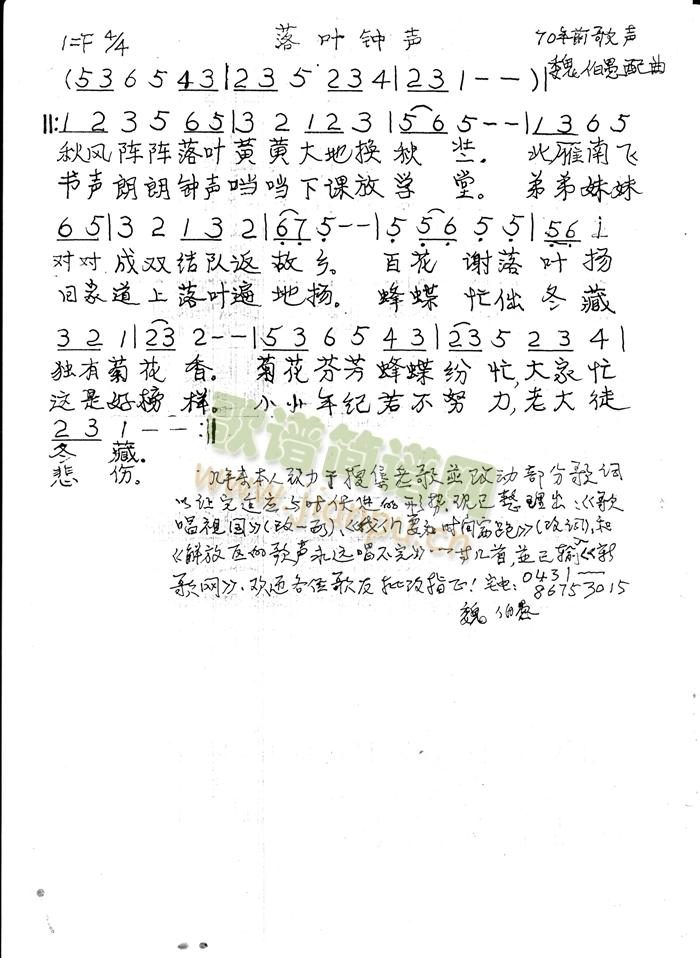 落叶钟声
1=F 4/4
70年前歌声
魏伯愚配曲
(5 3 6 5 4 3|2 3 5 2 3 4|2 3 1 - -)|
||:1 2 3 5 6 5|3 2 1 2 3|5 6 5 - -|1 3 6 5
秋风阵阵落叶黄黄大地换秋装。 北雁南飞
书声朗朗钟声当当下课放学堂。 弟弟妹妹
6 5|3 2 1 3 2|6 7 5 - -|5 5 6 5 5|5 6 i
对对成双结队返故乡。 百花谢落叶扬
回家道上落叶遍地扬。 蜂蝶忙仙冬藏
3 2 1|2 3 2 - -|5 3 6 5 4 3|2 3 5 2 3 4|
独有菊花香。 菊花芬芳蜂蝶纷忙,大家忙
这是好榜样。 小小年纪若不努力,老大徒
2 3 1 - - :||
冬藏。
悲伤。
几年来本人致力于搜集老歌並改动部分歌词
以让它适应与时俱进的形势,现已整理出《歌
唱祖国》(改一 )、《我们要和时间赛跑》(改词),和
《解放区的歌声永远唱不完》一共几首,並已输《新
歌网》,欢迎各位歌友批改指正!宅电:0431
86753015
魏伯愚
歌谱简谱网
www.jianpu.cn